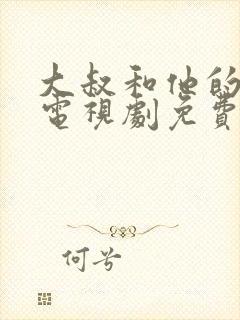 大叔和他的
電視劇免費
何兮